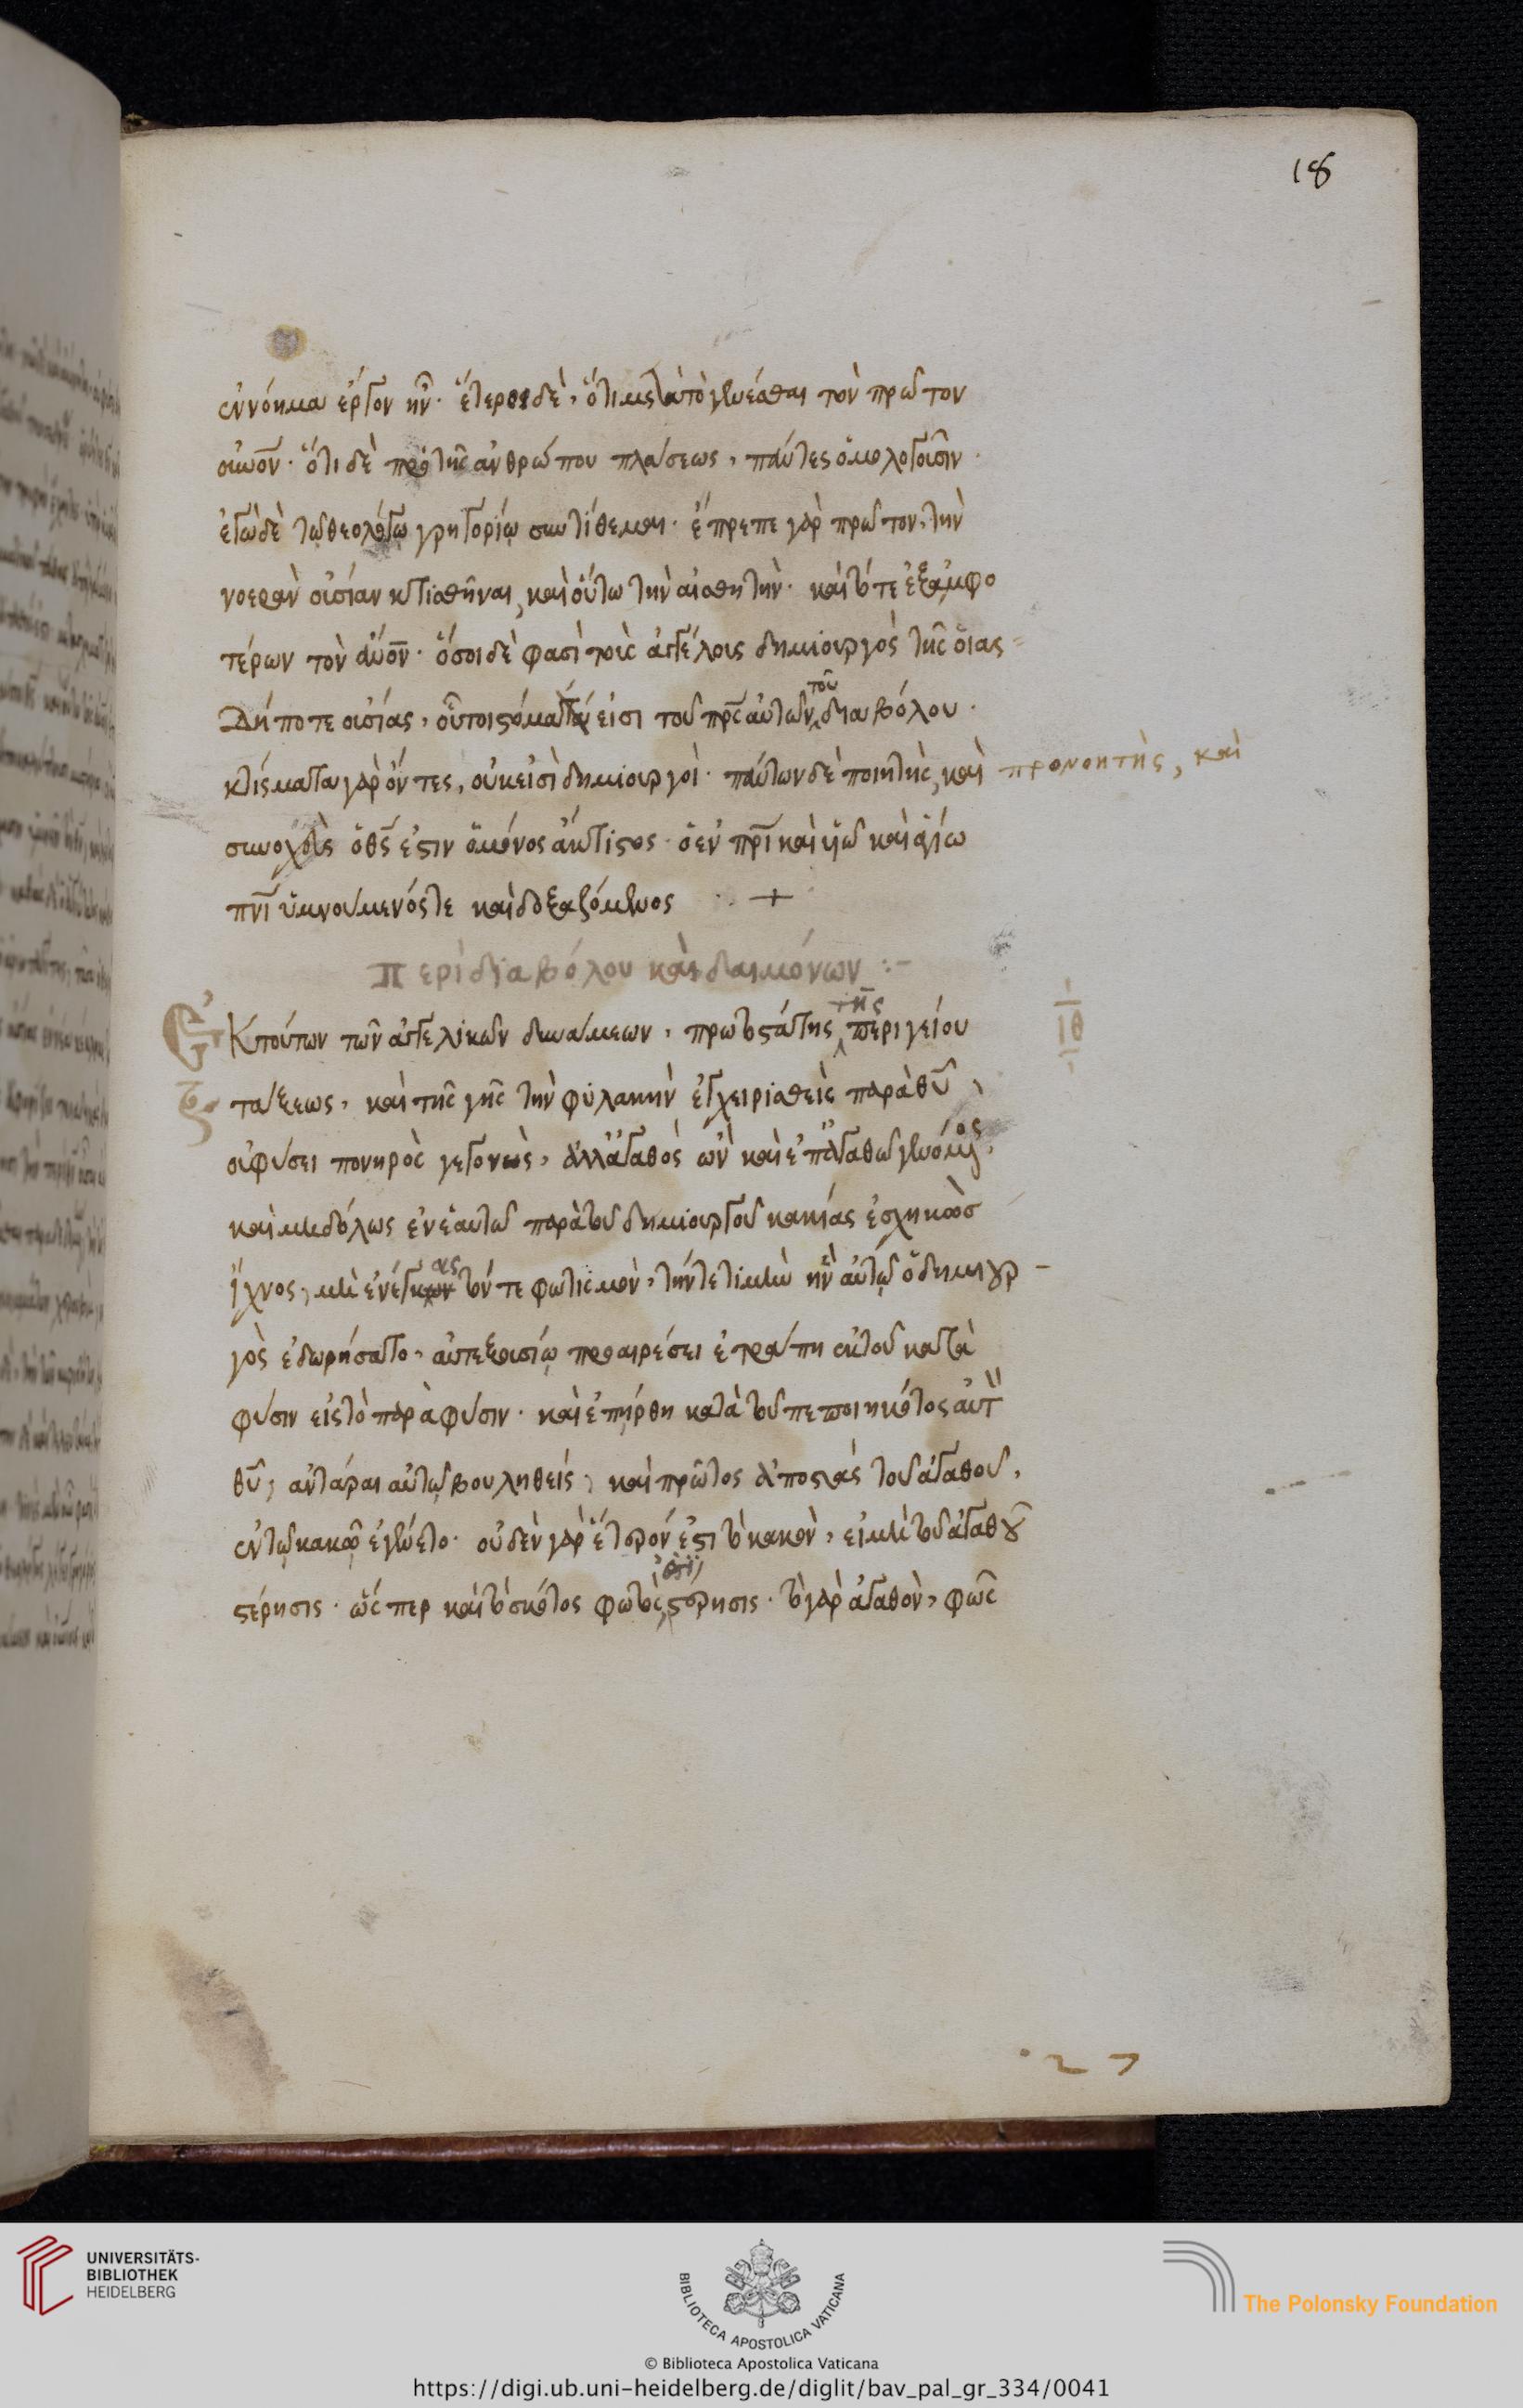 18
ἐννόημα ἔργον ἦν· ἕτεροι δὲ, ὅτι μετὰ τὸ γενέσθαι τὸν πρῶτον
οὐνὸν· ὅτι δὲ πρὸ τῆς ἀνθρώπου πλάσεως, πάντες ὁμολογοῦσιν·
ἐγὼ δὲ τῷ θεολόγῳ γρηγορίῳ συντίθεμαι· ἔπρεπε γὰρ πρῶτον, τὴν
νοερὰν οὐσίαν κτισθῆναι, καὶ οὕτω τὴν αἰσθητὴν· καὶ τότε ἐξ ἀμφο
τέρων τὸν ἄνον· ὅσοι δὲ φασὶ τοὺς ἀγγέλους δημιουργοὺς τῆς οἵας
δήποτε οὐσίας, οὗτοι στόμα εἰσι τοῦ πρς αὐτῶν τοῦ διαβόλου·
κτίσματα γὰρ ὄντες, οὐκ εἰσὶ δημιουργοὶ· πάντων δὲ ποιητὴς, καὶ προνοητὴς, καὶ
συνοχεὺς ὁ θς ἐστιν ὁ μόνος ἄκτιστος· ὁ ἐν πρι καὶ υἱῷ καὶ ἁγίω
πνι ὑμνούμενός τε καὶ δοξαζόμενος · +
Περὶ διαβόλου καὶ δαιμόνων :-
Ἐκ τούτων τῶν ἀγγελικῶν δυνάμεων, πρωτοστάτης τῆς περιγείου
ιθ
τάξεως, καὶ τῆς γῆς τὴν φυλακὴν ἐγχειρισθεὶς παρὰ θυ,
οὐ φύσει πονηρὸς γεγονὼς, ἀλλ' ἀγαθὸς ὢν καὶ ἐπ' ἀγαθῶ γενόμενος,
καὶ μηδόλως ἐν ἑαυτῶ παρὰ τοῦ δημιουργοῦ κακίας ἐσχηκὼσ
ἴχνος, μὴ ἐνέγκας τόν τε φωτισμὸν, τήν τε τιμὴν ἣν αὐτῷ ὁ δημιουρ-
γὸς ἐδωρήσατο, αὐτεξουσίῳ προαιρέσει ἐτράπη ἐκ τοῦ κατὰ
φύσιν εἰς τὸ παρὰ φύσιν· καὶ ἐπήρθη κατὰ τοῦ πεποιηκότος αὐτ
θυ, ἀντάραι αὐτῷ βουληθείς, καὶ πρῶτος ἀποστὰς τοῦ ἀγαθοῦ,
ἐν τῷ κακῷ ἐγένετο· οὐδὲν γὰρ ἕτερόν ἐστι τὸ κακὸν, εἰ μὴ τοῦ ἀγαθοῦ
στέρησις· ὥσπερ καὶ τὸ σκότος φωτὸς, ἐστὶ στέρησις· τὸ γὰρ ἀγαθὸν, φῶς
UNIVERSITÄTS-
BIBLIOTHEK
HEIDELBERG
BIBLIOTECA APOSTOLICA VATICANA
The Polonsky Foundation
© Biblioteca Apostolica Vaticana
https://digi.ub.uni-heidelberg.de/diglit/bav_pal_gr_334/0041